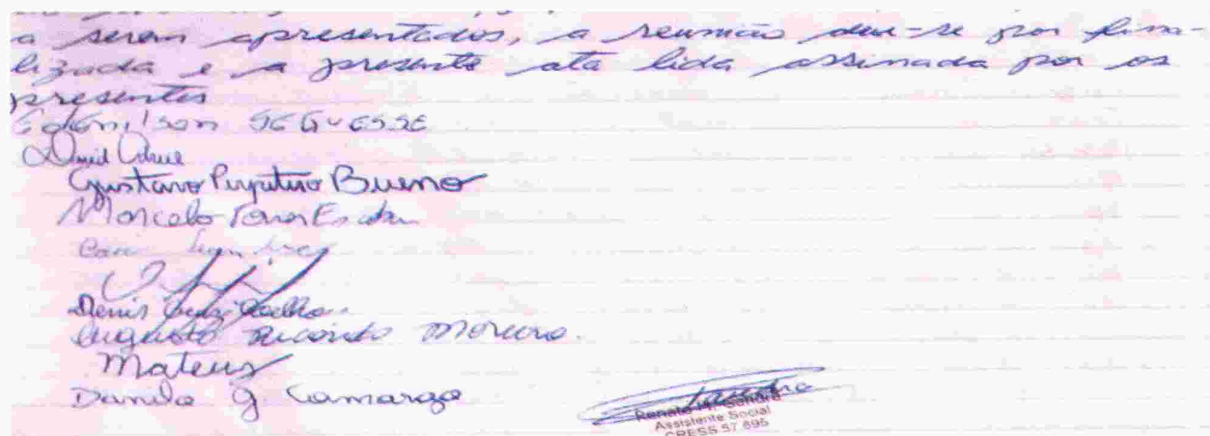 a serem apresentados, a reunião deu-se por fina-
lizada e a presente ata lida assinada por os
presentes
Edenilson SEGUESSE
David
Gustavo Perpetuo Bueno
Marcelo
Denis Coelho
Augusto Ricardo Moreira.
Mateus
Danilo G. Camargo
Renato M. Sandra
Assistente Social
CRESS 57 895